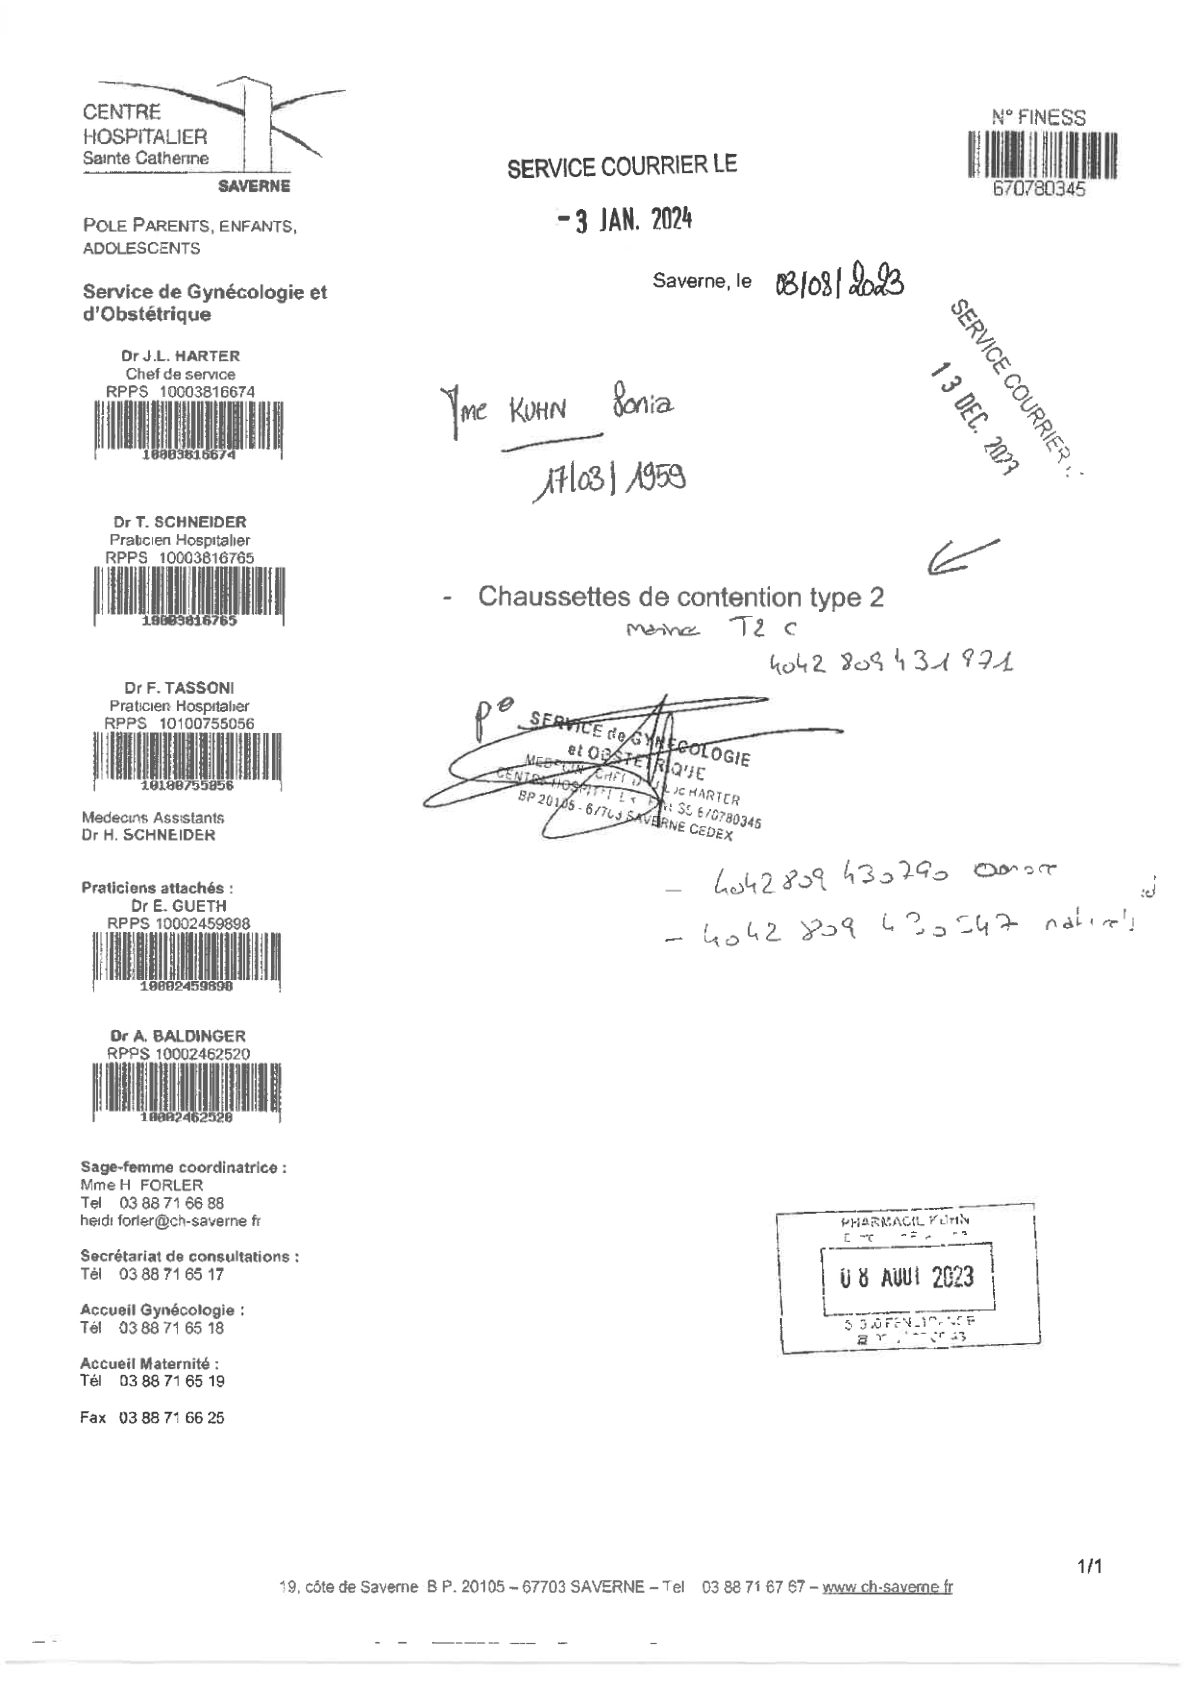 CENTRE
HOSPITALIER
Sainte Catherine
SAVERNE
POLE PARENTS, ENFANTS,
ADOLESCENTS
Service de Gynécologie et
d'Obstétrique
Dr J.L. HARTER
Chef de service
RPPS 10003816674
10003816674
Dr T. SCHNEIDER
Praticien Hospitalier
RPPS 10003816765
10003816765
Dr F. TASSONI
Praticien Hospitalier
RPPS 10100755056
10100755056
Medecins Assistants
Dr H. SCHNEIDER
Praticiens attachés :
Dr E. GUETH
RPPS 10002459898
10002459898
Dr A. BALDINGER
RPPS 10002462520
10002462520
Sage-femme coordinatrice :
Mme H FORLER
Tel 03 88 71 66 88
heidi forler@ch-saverne fr
Secrétariat de consultations :
Tél 03 88 71 65 17
Accueil Gynécologie :
Tél 03 88 71 65 18
Accueil Maternité :
Tél 03 88 71 65 19
Fax 03 88 71 66 25
SERVICE COURRIER LE
-3 JAN. 2024
N° FINESS
670780345
Saverne, le 03/08/2023
SERVICE COURRIER
13 DEC. 2023
Mme KUHN Sonia
17/03/1959
- Chaussettes de contention type 2
T2 C
4042 809 431 971
po
SERVICE de GYNECOLOGIE
et OBSTETRIQUE
HARTER
670780345
BP 20105 - 67703 SAVERNE CEDEX
- 4042 809 430290
- 4042 809 430547
PHARMACIE KUHN
08 AOUT 2023
1/1
19, côte de Saverne B P. 20105 – 67703 SAVERNE – Tel 03 88 71 67 67 – www ch-saverne fr